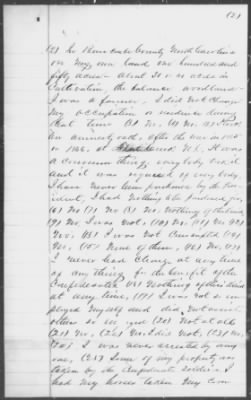 (2)
(2) In Rowan County North Carolina
on My own land one hundred and
fifty acres - about 20 or 30 acres in
Cultivation, the balance woodland -
I was a farmer, I did not change
My occupation or residence during
that time (3) No, (4) No. (5) I took
an amnesty oath, after the war in 1865
or 1866, at N.C. It was
a common thing, every body did it
and it was required of every body,
I have never been pardoned by the Pres-
ident, I had Nothing to be pardoned for,
(6) No (7) No (8) No. Nothing of the kind
(9) No, I was not, (10) No. (11) No (12)
No. (13) I was not Conscripted (14)
No, (15) None of them, (16) No, (17)
I never had charge at any time
of any thing for the benefit of the
Confederates (18) Nothing of the kind
at any time, (19) I was not em-
ployed Myself and did not assist
others so en-gaged (20) Not at all
(21) No, (22) No. I did not, (23) No,
(24) I was never arrested by any
one, (25) Some of my property was
taken by the Confederate soldiers. I
had My horses taken My